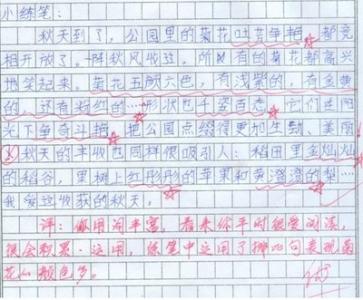 小练笔：
秋天到了，公园里的菊花吐蕊争艳，都竞
相开放了。一阵秋风吹过，所有的菊花都高兴
地笑起来。菊花五颜六色，有浅紫的，有金黄
的，还有粉红的……形状也千姿百态，它们在阳
光下争奇斗艳，把公园点缀得更加生动、美丽
秋天的丰收也同样很吸引人：稻田里金灿灿
的稻谷，果树上红彤彤的苹果和黄澄澄的梨……
我爱这收获的秋天。
评：你用词丰富，看来你平时很爱阅读，
很会积累、运用，练笔中运用了排比句表现菊
花的颜色多。